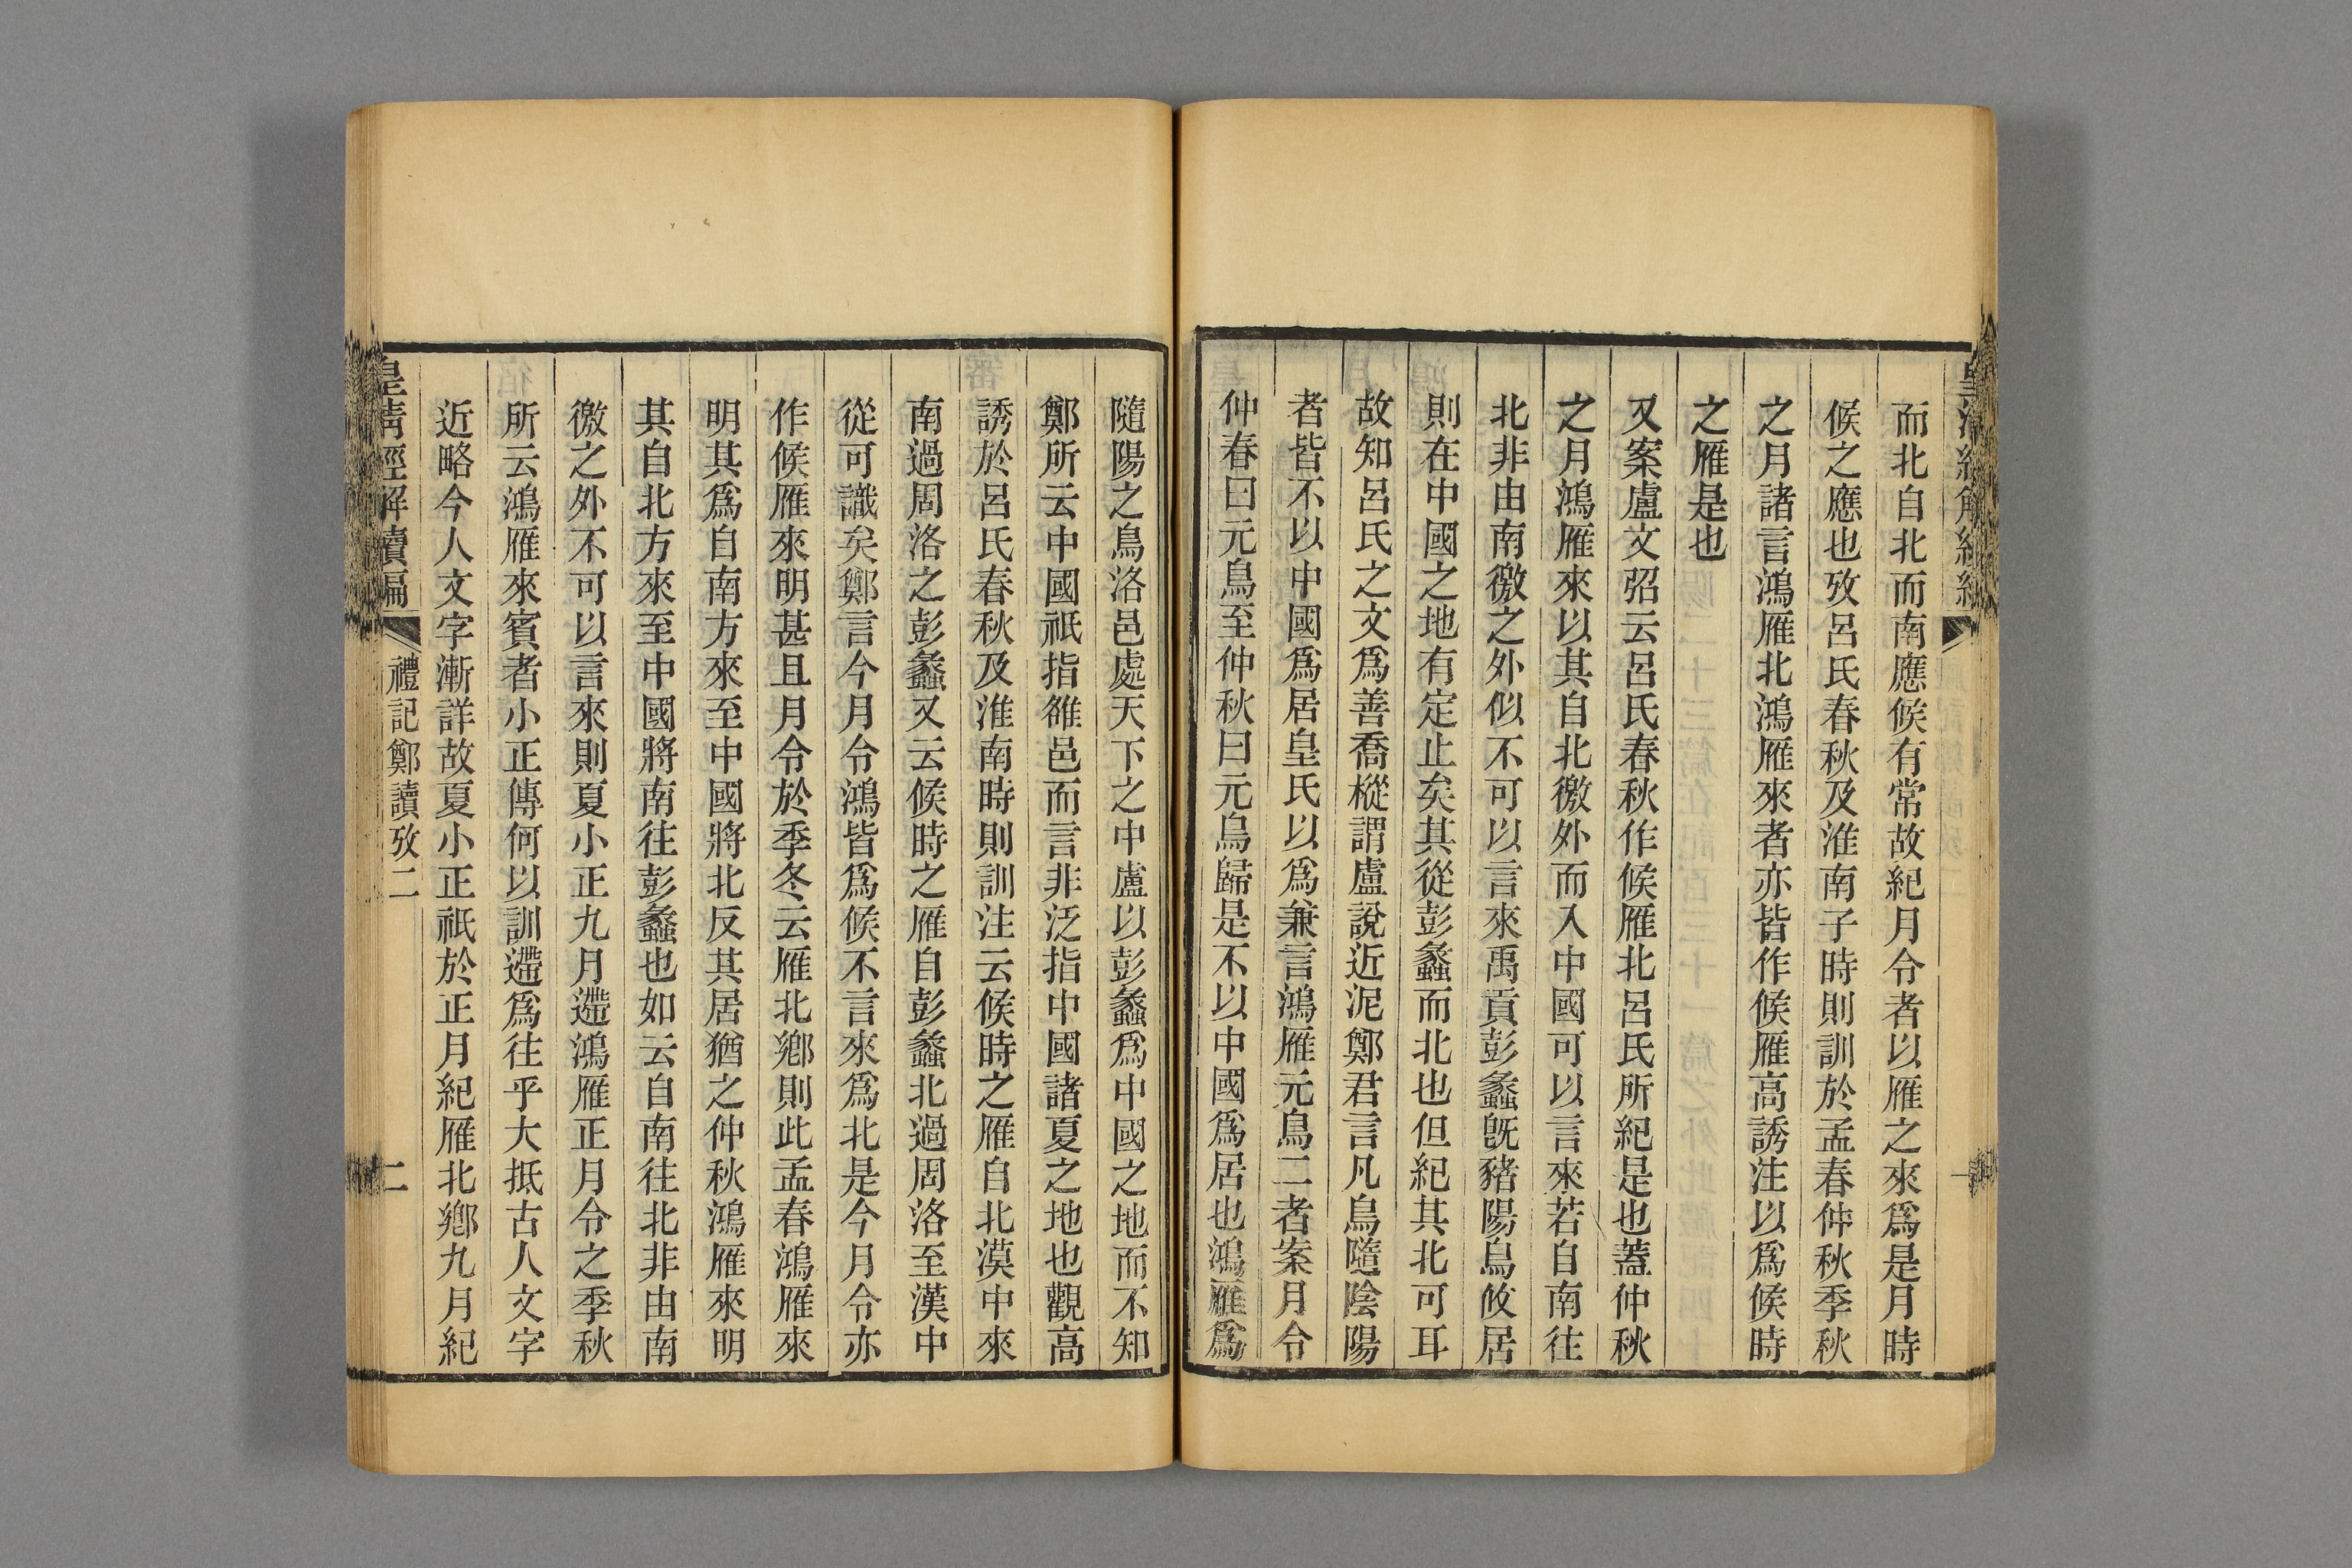 而北自北而南應候有常故紀月令者以雁之來爲是月時
候之應也攷呂氏春秋及淮南子時則訓於孟春仲秋季秋
之月諸言鴻雁北鴻雁來者亦皆作候雁高誘注以爲候時
之雁是也
又案盧文弨云呂氏春秋作候雁北呂氏所紀是也蓋仲秋
之月鴻雁來以其自北徼外而入中國可以言來若自南往
北非由南徼之外似不可以言來禹貢彭蠡旣豬陽鳥攸居
則在中國之地有定止矣其從彭蠡而北也但紀其北可耳
故知呂氏之文爲善喬樅謂盧說近泥鄭君言凡鳥隨陰陽
者皆不以中國爲居皇氏以爲兼言鴻雁元鳥二者案月令
仲春曰元鳥至仲秋曰元鳥歸是不以中國爲居也鴻雁爲
隨陽之鳥洛邑處天下之中盧以彭蠡爲中國之地而不知
鄭所云中國祇指雒邑而言非泛指中國諸夏之地也觀高
誘於呂氏春秋及淮南時則訓注云候時之雁自北漠中來
南過周洛之彭蠡又云候時之雁自彭蠡北過周洛至漢中
從可識矣鄭言今月令鴻皆爲候不言來爲北是今月令亦
作候雁來明甚且月令於季冬云雁北鄉則此孟春鴻雁來
明其爲自南方來至中國將北反其居猶之仲秋鴻雁來明
其自北方來至中國將南往彭蠡也如云自南往北非由南
徼之外不可以言來則夏小正九月遰鴻雁正月令之季秋
所云鴻雁來賓者小正傳何以訓遰爲往乎大抵古人文字
近略今人文字漸詳故夏小正祇於正月紀雁北鄉九月紀
皇清經解續編
禮記鄭讀攷二
二